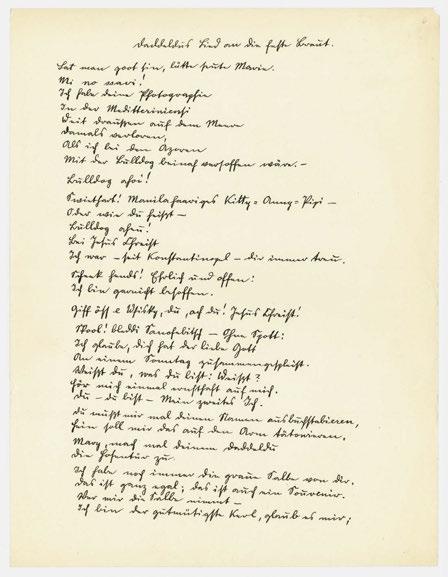 Daddeldus Lied an die feste Braut.
Lat man goot sin, lütte seute Marie.
Mi no savi!
Ich habe deine Photographie
In der Mediterriniensi
Weit draussen auf dem Meere
Damals verloren,
Als ich bei den Azoren
Mit der Bulldog beinah versoffen wäre. –
Bulldog ahoi!
Swiethart! Manilahaariges Kitty-Anny-Pipi –
Oder wie du heisst –
Bulldog ahoi!
Bei Jesus Chreist
Ich war – seit Konstantinopel – dir immer treu.
Scheek hends! Ehrlich und offen:
Ich bin garnicht besoffen.
Giff öss e Whisky, du, ach du! Jesus Chreist!
Skool! Bleddi Sanofebitsch – Ohne Spott:
Ich glaube, dich hat der liebe Gott
An einem Sonntag zusammengespleisst.
Weisst du, was du bist? Weisst?
Hör mich einmal ernsthaft auf mich.
Du – du bist – Mein zweites Ich.
Du musst mir mal deinen Namen ausbuchstabieren,
Hein soll mir das auf den Arm tätowieren.
Mary, mach mal deinem Daddeldu
Die Hosentür zu.
Ich habe noch immer die graue Salbe von dir.
Das ist ganz egal; das ist auch ein Souvenir.
Wer mir die Salbe nimmt –
Ich bin der gutmütigste Kerl, glaub es mir;